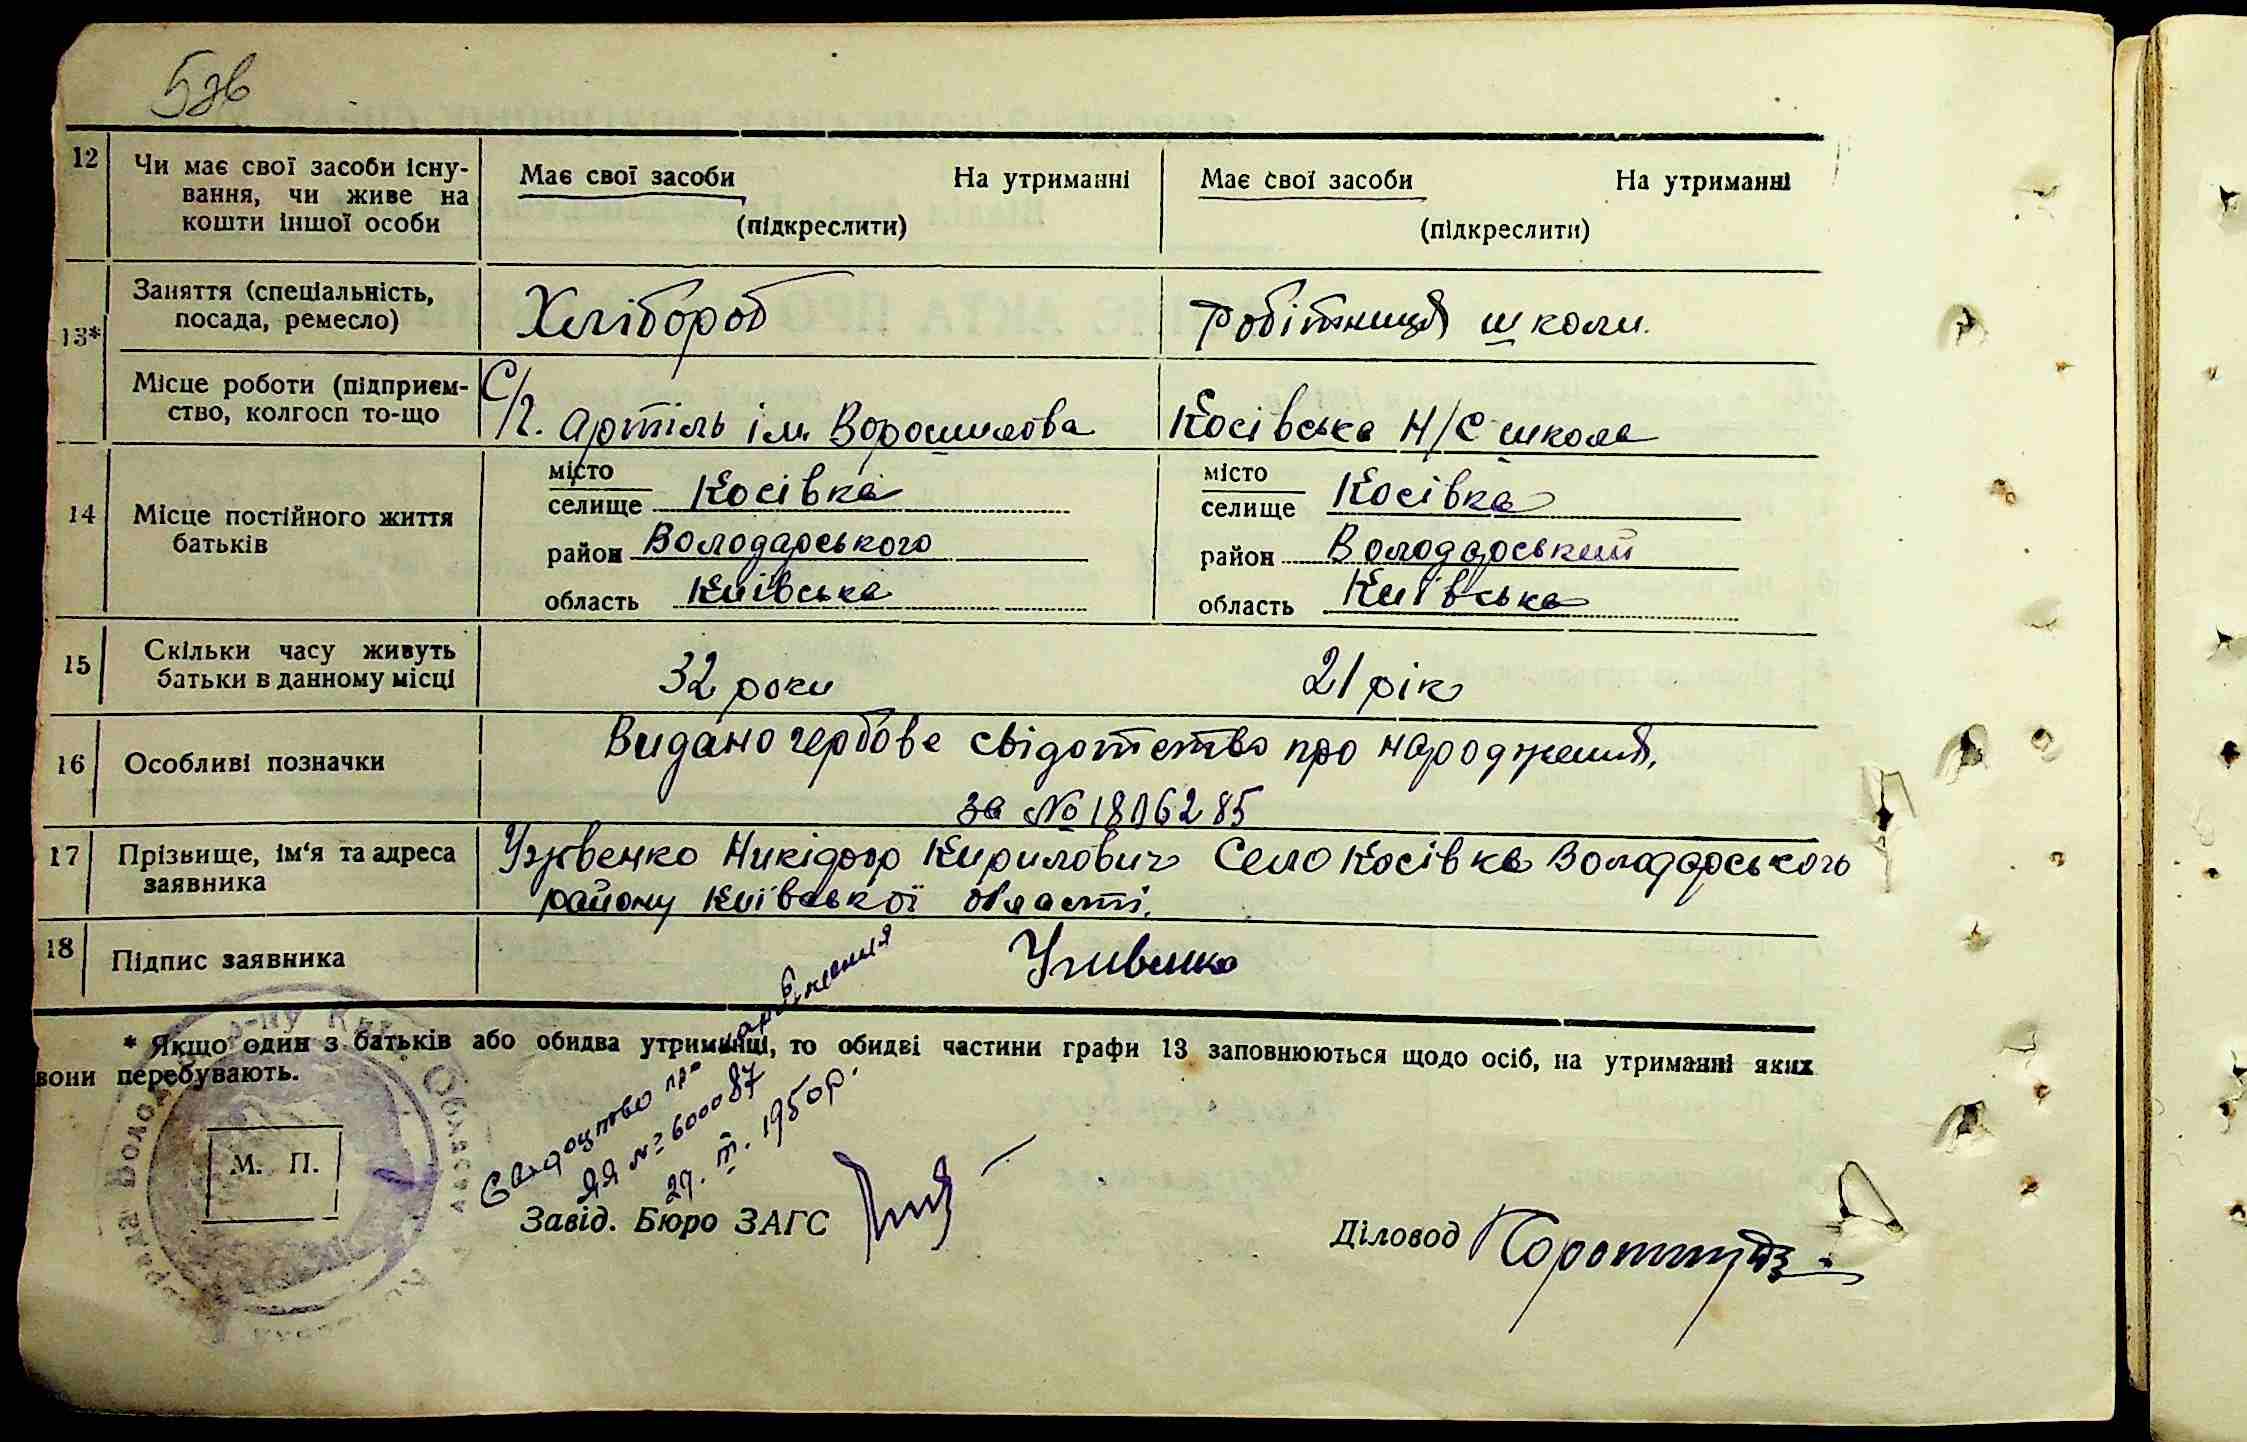 5зв
12 Чи має свої засоби існу-
вання, чи живе на
кошти іншої особи
Має свої засоби На утриманні
(підкреслити)
Має свої засоби На утриманні
(підкреслити)
13*
Заняття (спеціальність,
посада, ремесло)
Хлібороб
робітниця школи.
Місце роботи (підприєм-
ство, колгосп то-що
С/Г. Артіль ім. Ворошилова
Косівська Н/С школа
14 Місце постійного життя
батьків
місто
селище Косівка
район Володарського
область Київська
місто
селище Косівка
район Володарський
область Київська
15 Скільки часу живуть
батьки в данному місці
32 роки
21 рік
16 Особливі позначки
Видано гербове свідотство про народження,
за № 1806285
17 Прізвище, ім'я та адреса
заявника
Ужвенко Никідфор Кирилович Село Косівка Володарського
району Київської області.
18 Підпис заявника
Ужвенко
* Якщо один з батьків або обидва утриманці, то обидві частини графи 13 заповнюються щодо осіб, на утриманні яких
вони перебувають.
Свидоцтво про народження
ЯЯ № 600087
29. III. 1950 р.
М. П.
Завід. Бюро ЗАГС
Діловод